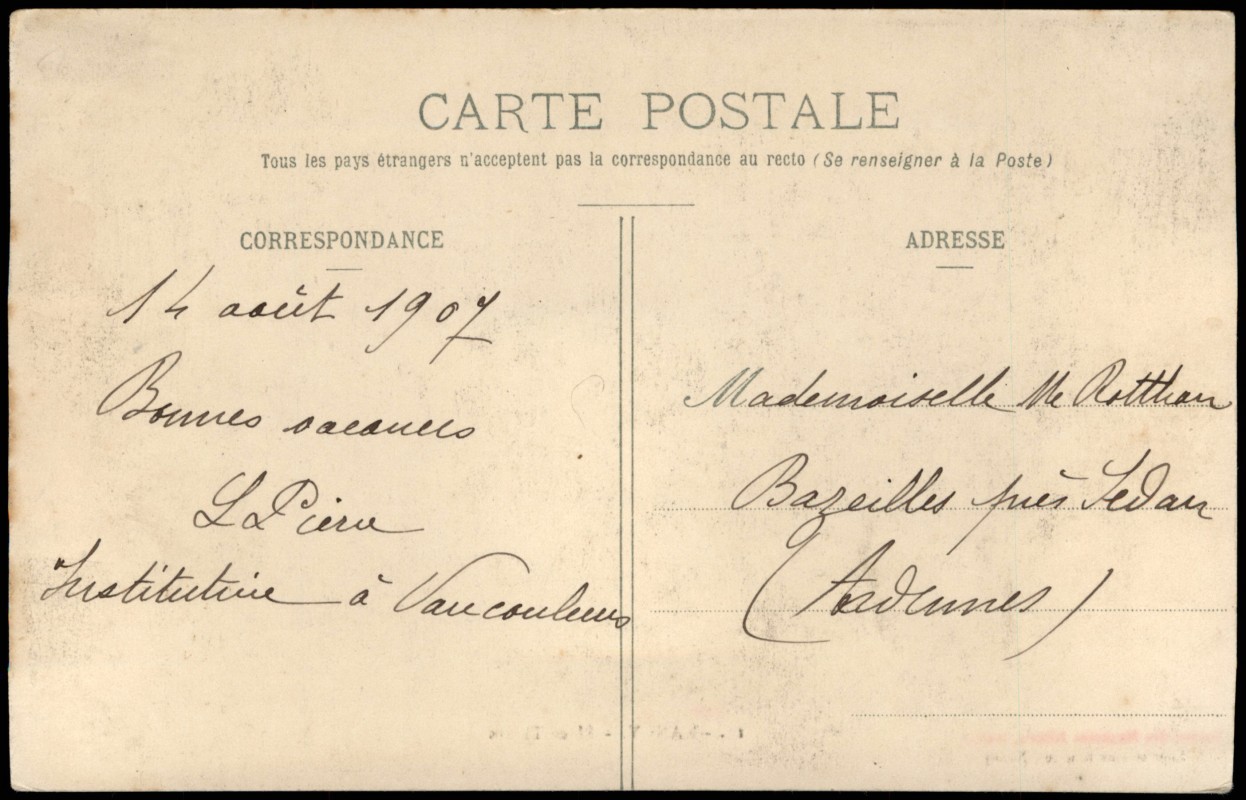 CARTE POSTALE
Tous les pays étrangers n'acceptent pas la correspondance au recto (Se renseigner à la Poste)
CORRESPONDANCE
14 août 1907
Bonnes vacances
L Pierre
Institutrice à Vaucouleurs
ADRESSE
Mademoiselle M Rotthan
Bazeilles près Sedan
(Ardennes)